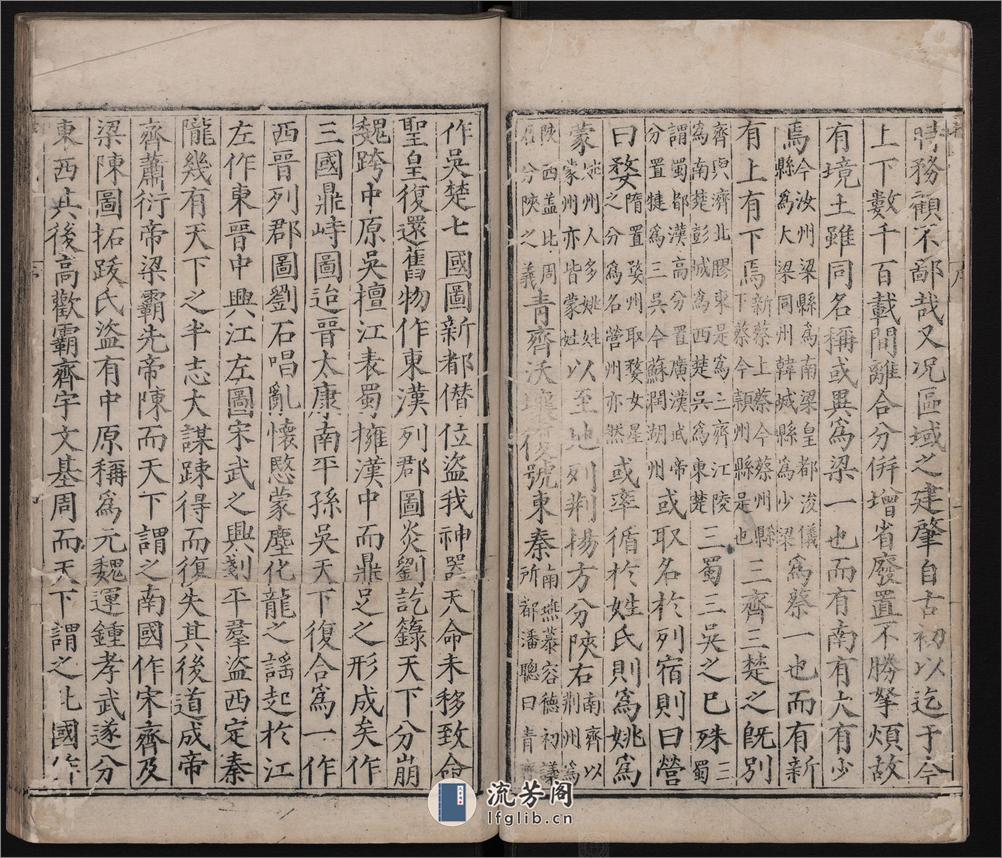 時務顧不鄙哉又況區域之建肇自古初以迄于今
上下數千百載間離合分併增省廢置不勝拏煩故
有境土雖同名稱或異為梁一也而有南有大有少
今汝州梁縣為南梁皇都浚儀縣為大梁同州韓城縣為少梁
焉為蔡一也而有新
有上有下焉新蔡上蔡今蔡州縣下蔡今潁州縣是也三齊三楚之既別
齊與濟北膠東是為三齊江陵為南楚彭城為西楚吳為東楚三蜀三吳之已殊三蜀
謂蜀郡漢高分置廣漢武帝分置犍為三吳今蘇潤湖州或取名於列宿則曰營
曰婺隋置婺州取婺女星之分為名營州亦然或率循於姓氏則為姚為
蒙姚州人多姚姓蒙州亦皆蒙姓以至地列荆揚方分陝右南齊以荆州為
陝西盖比周召分陝之義青齊沃壤復號東秦南燕慕容德初議所都潘聰曰青齊
作吳楚七國圖新都僣位盜我神器天命未移致命
聖皇復還舊物作東漢列郡圖炎劉訖籙天下分崩
魏跨中原吳檀江表蜀擁漢中而鼎足之形成矣作
三國鼎峙圖迨晉太康南平孫吳天下復合為一作
西晉列郡圖劉石唱亂懷愍蒙塵化龍之謡起於江
左作東晉中興江左圖宋武之興剗平羣盜西定秦
隴幾有天下之半志大謀踈得而復失其後道成帝
齊蕭衍帝梁霸先帝陳而天下謂之南國作宋齊及
梁陳圖拓跋氏盜有中原稱為元魏運鍾孝武遂分
東西其後高歡霸齊宇文基周而天下謂之北國作
流芳阁
lfglib.cn